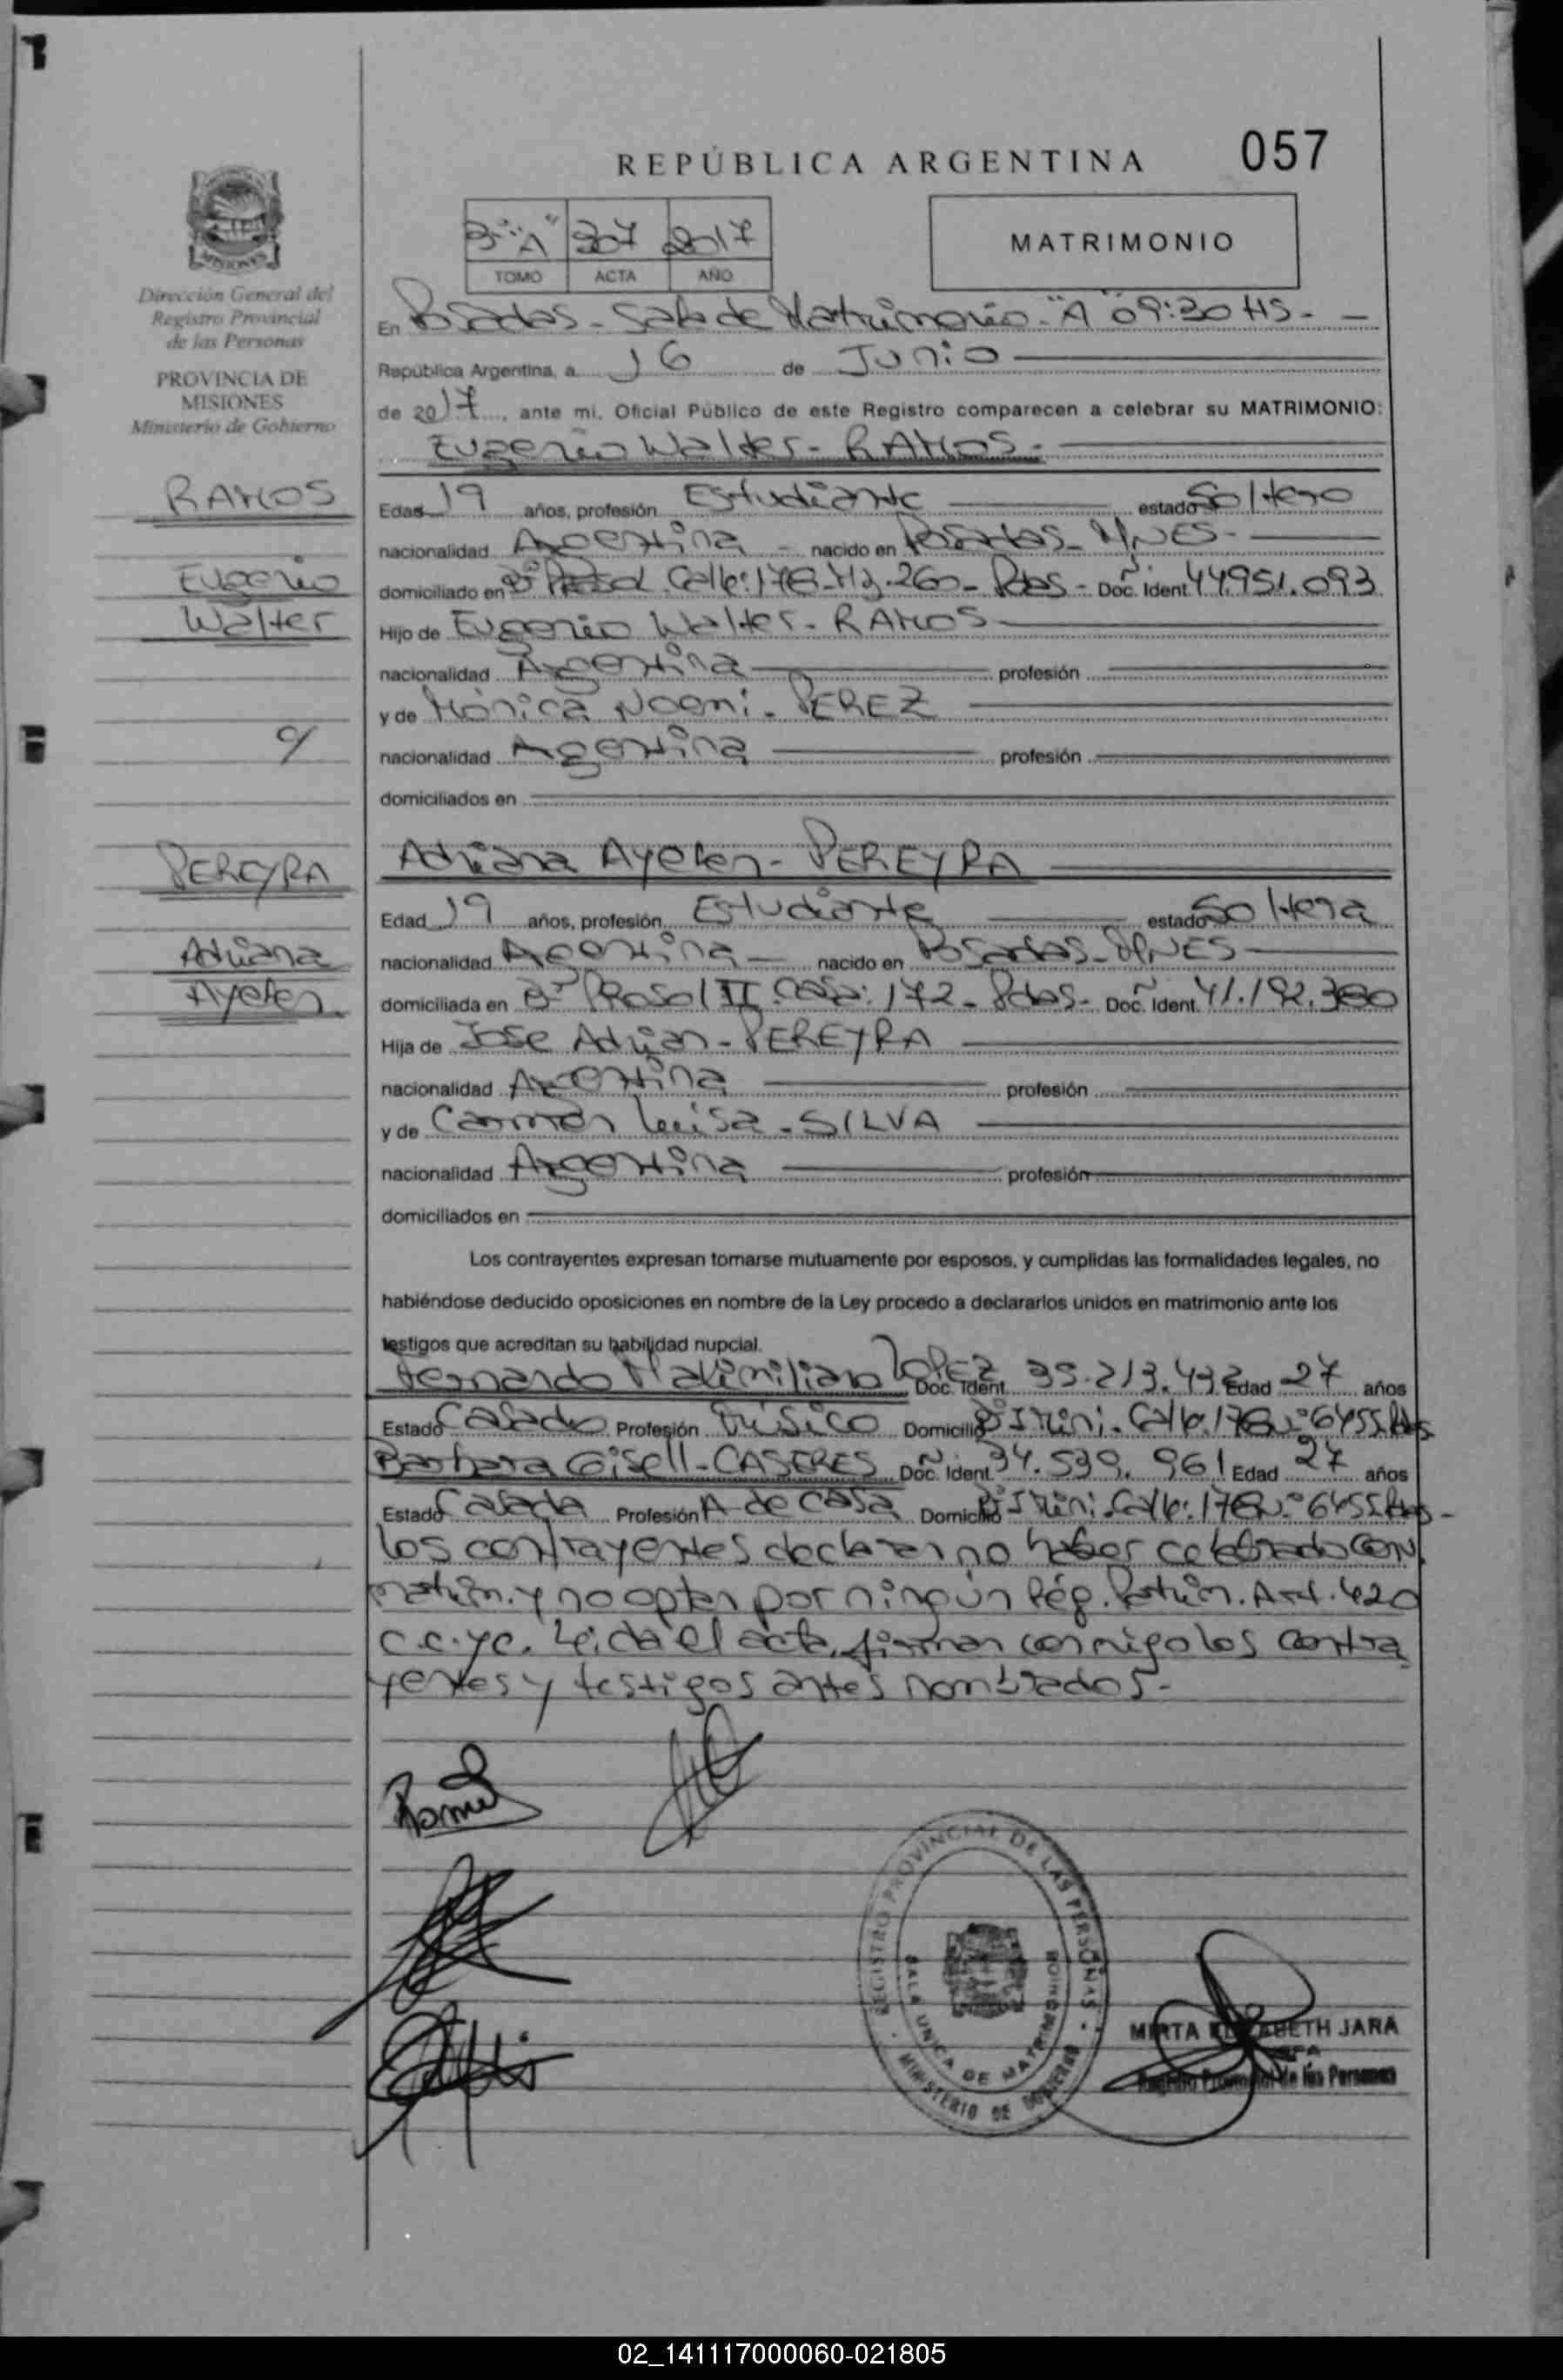 REPÚBLICA ARGENTINA 057
3º "A" 307 2017
TOMO ACTA AÑO
MATRIMONIO
MISIONES
Dirección General del
Registro Provincial
de las Personas
PROVINCIA DE
MISIONES
Ministerio de Gobierno
En Posadas - Sala de Matrimonio - "A" 09:30 HS -
República Argentina, a 16 de Junio
de 2017, ante mi, Oficial Público de este Registro comparecen a celebrar su MATRIMONIO:
Eugenio Walter - RAMOS -
RAMOS
Eugenio
Walter
c/
PEREYRA
Adriana
Ayelen
Edad 19 años, profesión Estudiante estado Soltero
nacionalidad Argentina - nacido en Posadas - MNES -
domiciliado en Bº Calle: 178 - Mz - 260 - Pdas - Doc. Ident 44.951.093
Hijo de Eugenio Walter - RAMOS
nacionalidad Argentina profesión
y de Mónica Noemi - PEREZ
nacionalidad Argentina profesión
domiciliados en
Adriana Ayelen - PEREYRA
Edad 19 años, profesión Estudiante estado Soltera
nacionalidad Argentina - nacido en Posadas - MNES
domiciliada en Bº Prosol II casa: 172 - Pdas - Doc. Ident. 41.192.380
Hija de Jose Adrian - PEREYRA
nacionalidad Argentina profesión
y de Carmen Luisa - SILVA
nacionalidad Argentina profesión
domiciliados en
Los contrayentes expresan tomarse mutuamente por esposos, y cumplidas las formalidades legales, no
habiéndose deducido oposiciones en nombre de la Ley procedo a declararlos unidos en matrimonio ante los
testigos que acreditan su habilidad nupcial.
Fernando Maximiliano LOPEZ Doc. Ident. 35.213.492 Edad 27 años
Estado Casado Profesión Músico Domicilio Bº Itikini - Calle 178 Nº 6455 Pdas
Barbara Gisell - CASERES Doc. Ident. 34.539.961 Edad 27 años
Estado Casada Profesión A de Casa Domicilio Bº Calle: 178 Nº 6455 Pdas -
los contrayentes declaran no haber celebrado Con.
matrim. y no optan por ningún Rég. Patrim. Art. 420
C.C.yC. Leida el acta, firman conmigo los contra
yentes y testigos antes nombrados -
REGISTRO PROVINCIAL DE LAS PERSONAS
SALA UNICA DE MATRIMONIOS
MINISTERIO DE GOBIERNO
MIRTA ELIZABETH JARA
JEFA
Registro Provincial de las Personas
02_141117000060-021805